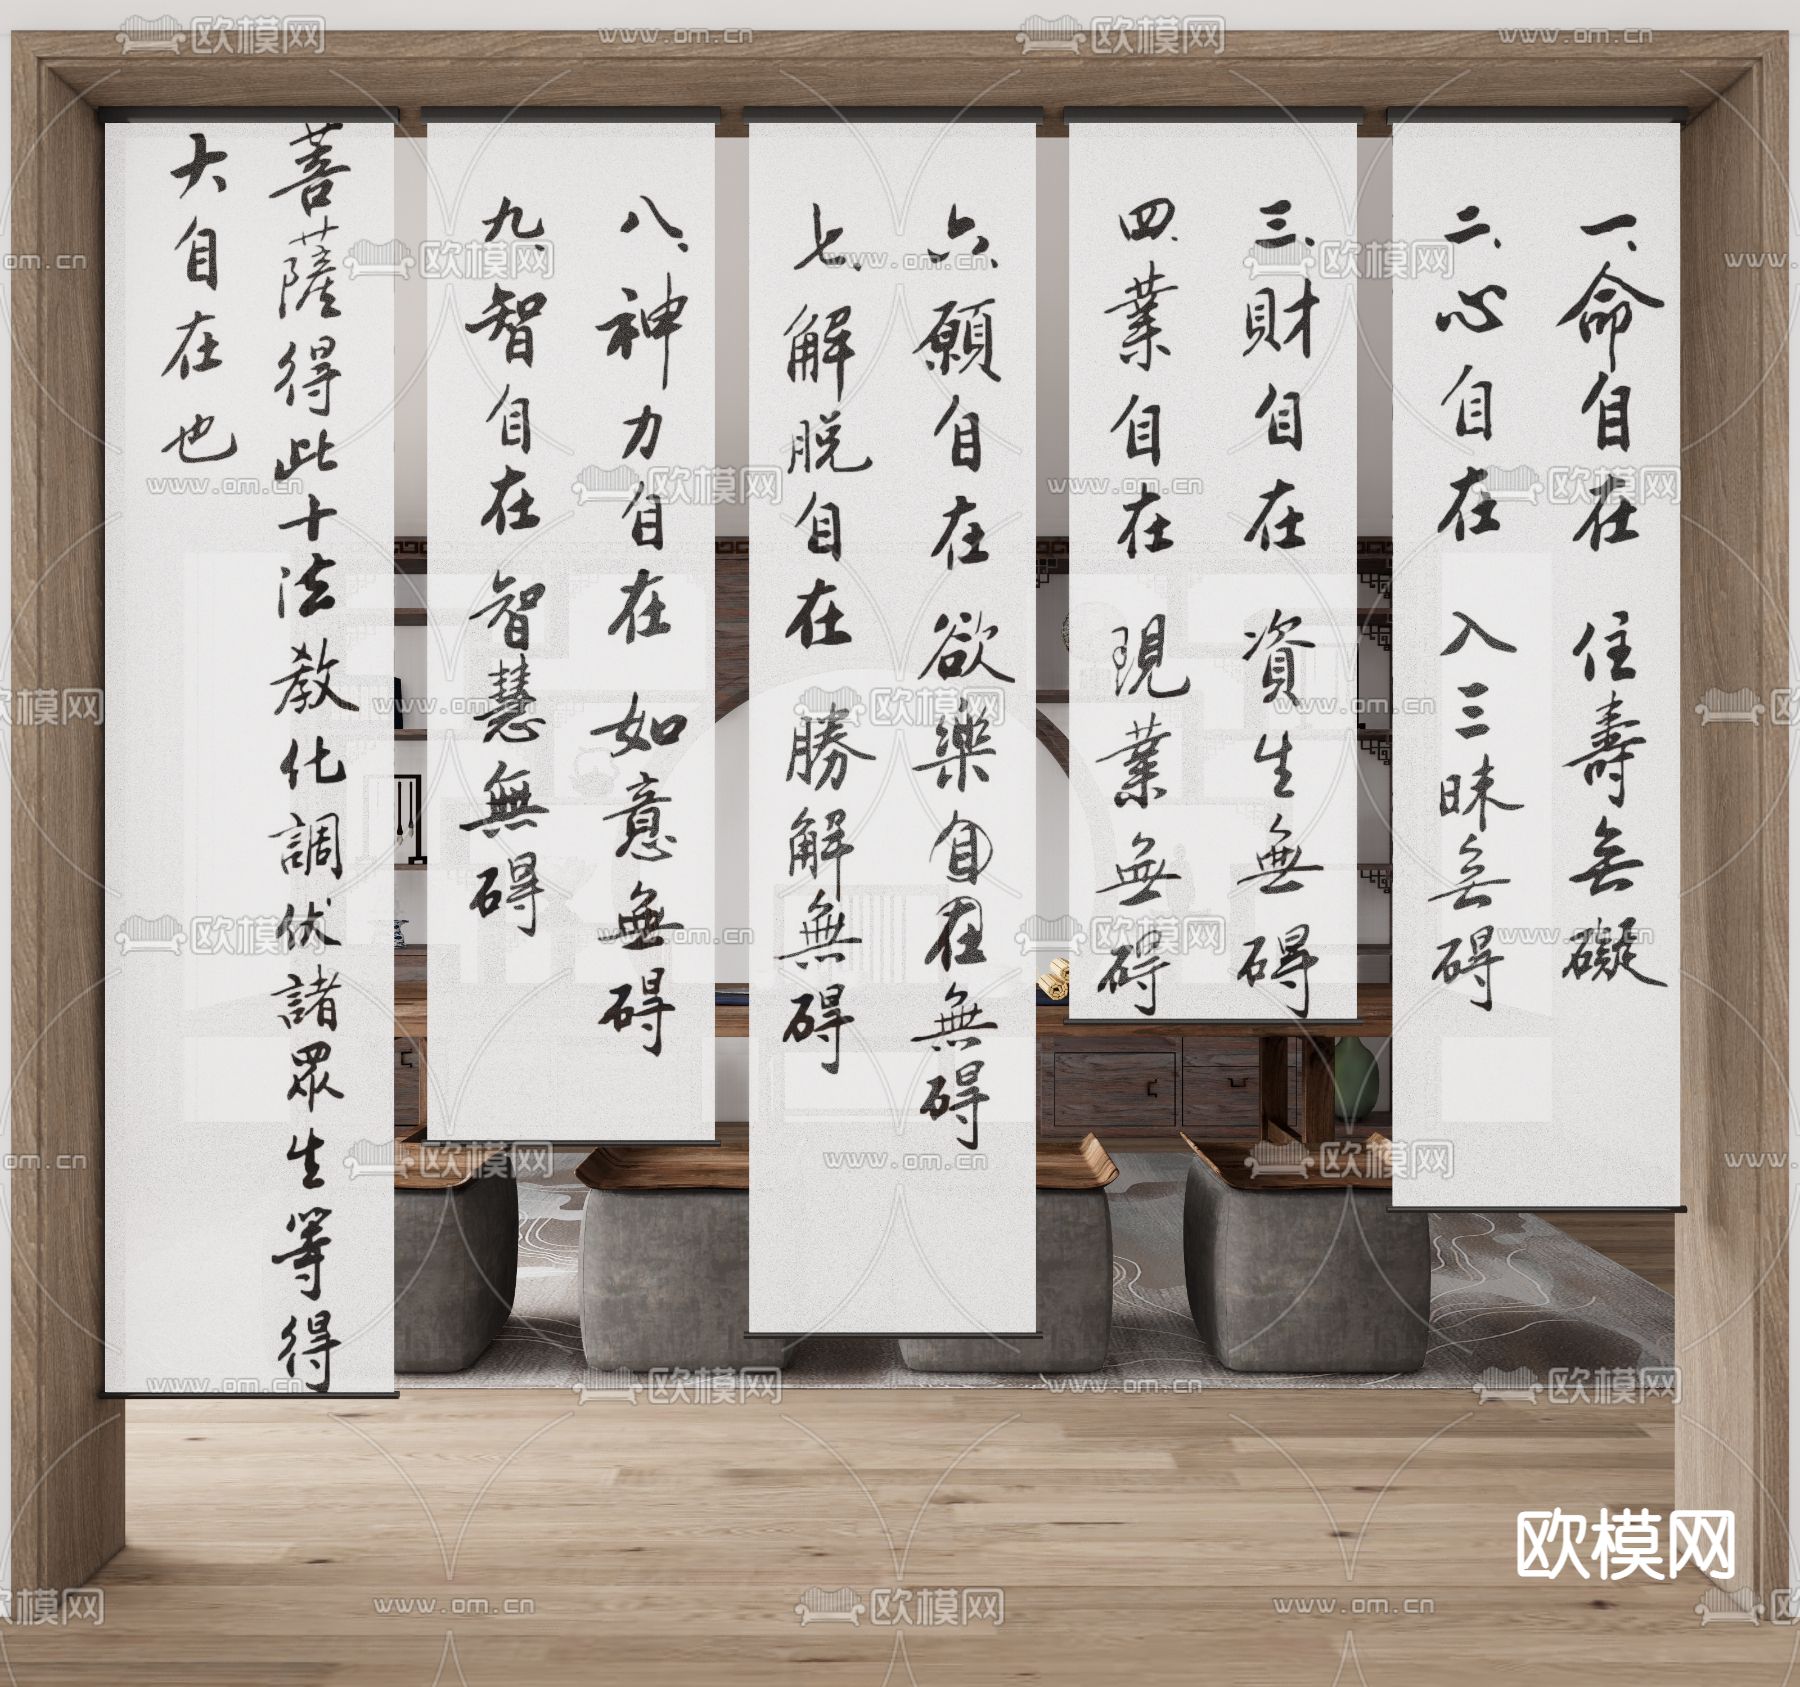 一、命自在 住壽无礙
二、心自在 入三昧无碍
三、財自在 資生無碍
四、業自在 現業無碍
六、願自在 欲樂自在無碍
七、解脫自在 勝解無碍
八、神力自在 如意無碍
九、智自在 智慧無碍
菩薩得此十法教化調伏諸眾生等得
大自在也
欧模网
www.om.cn